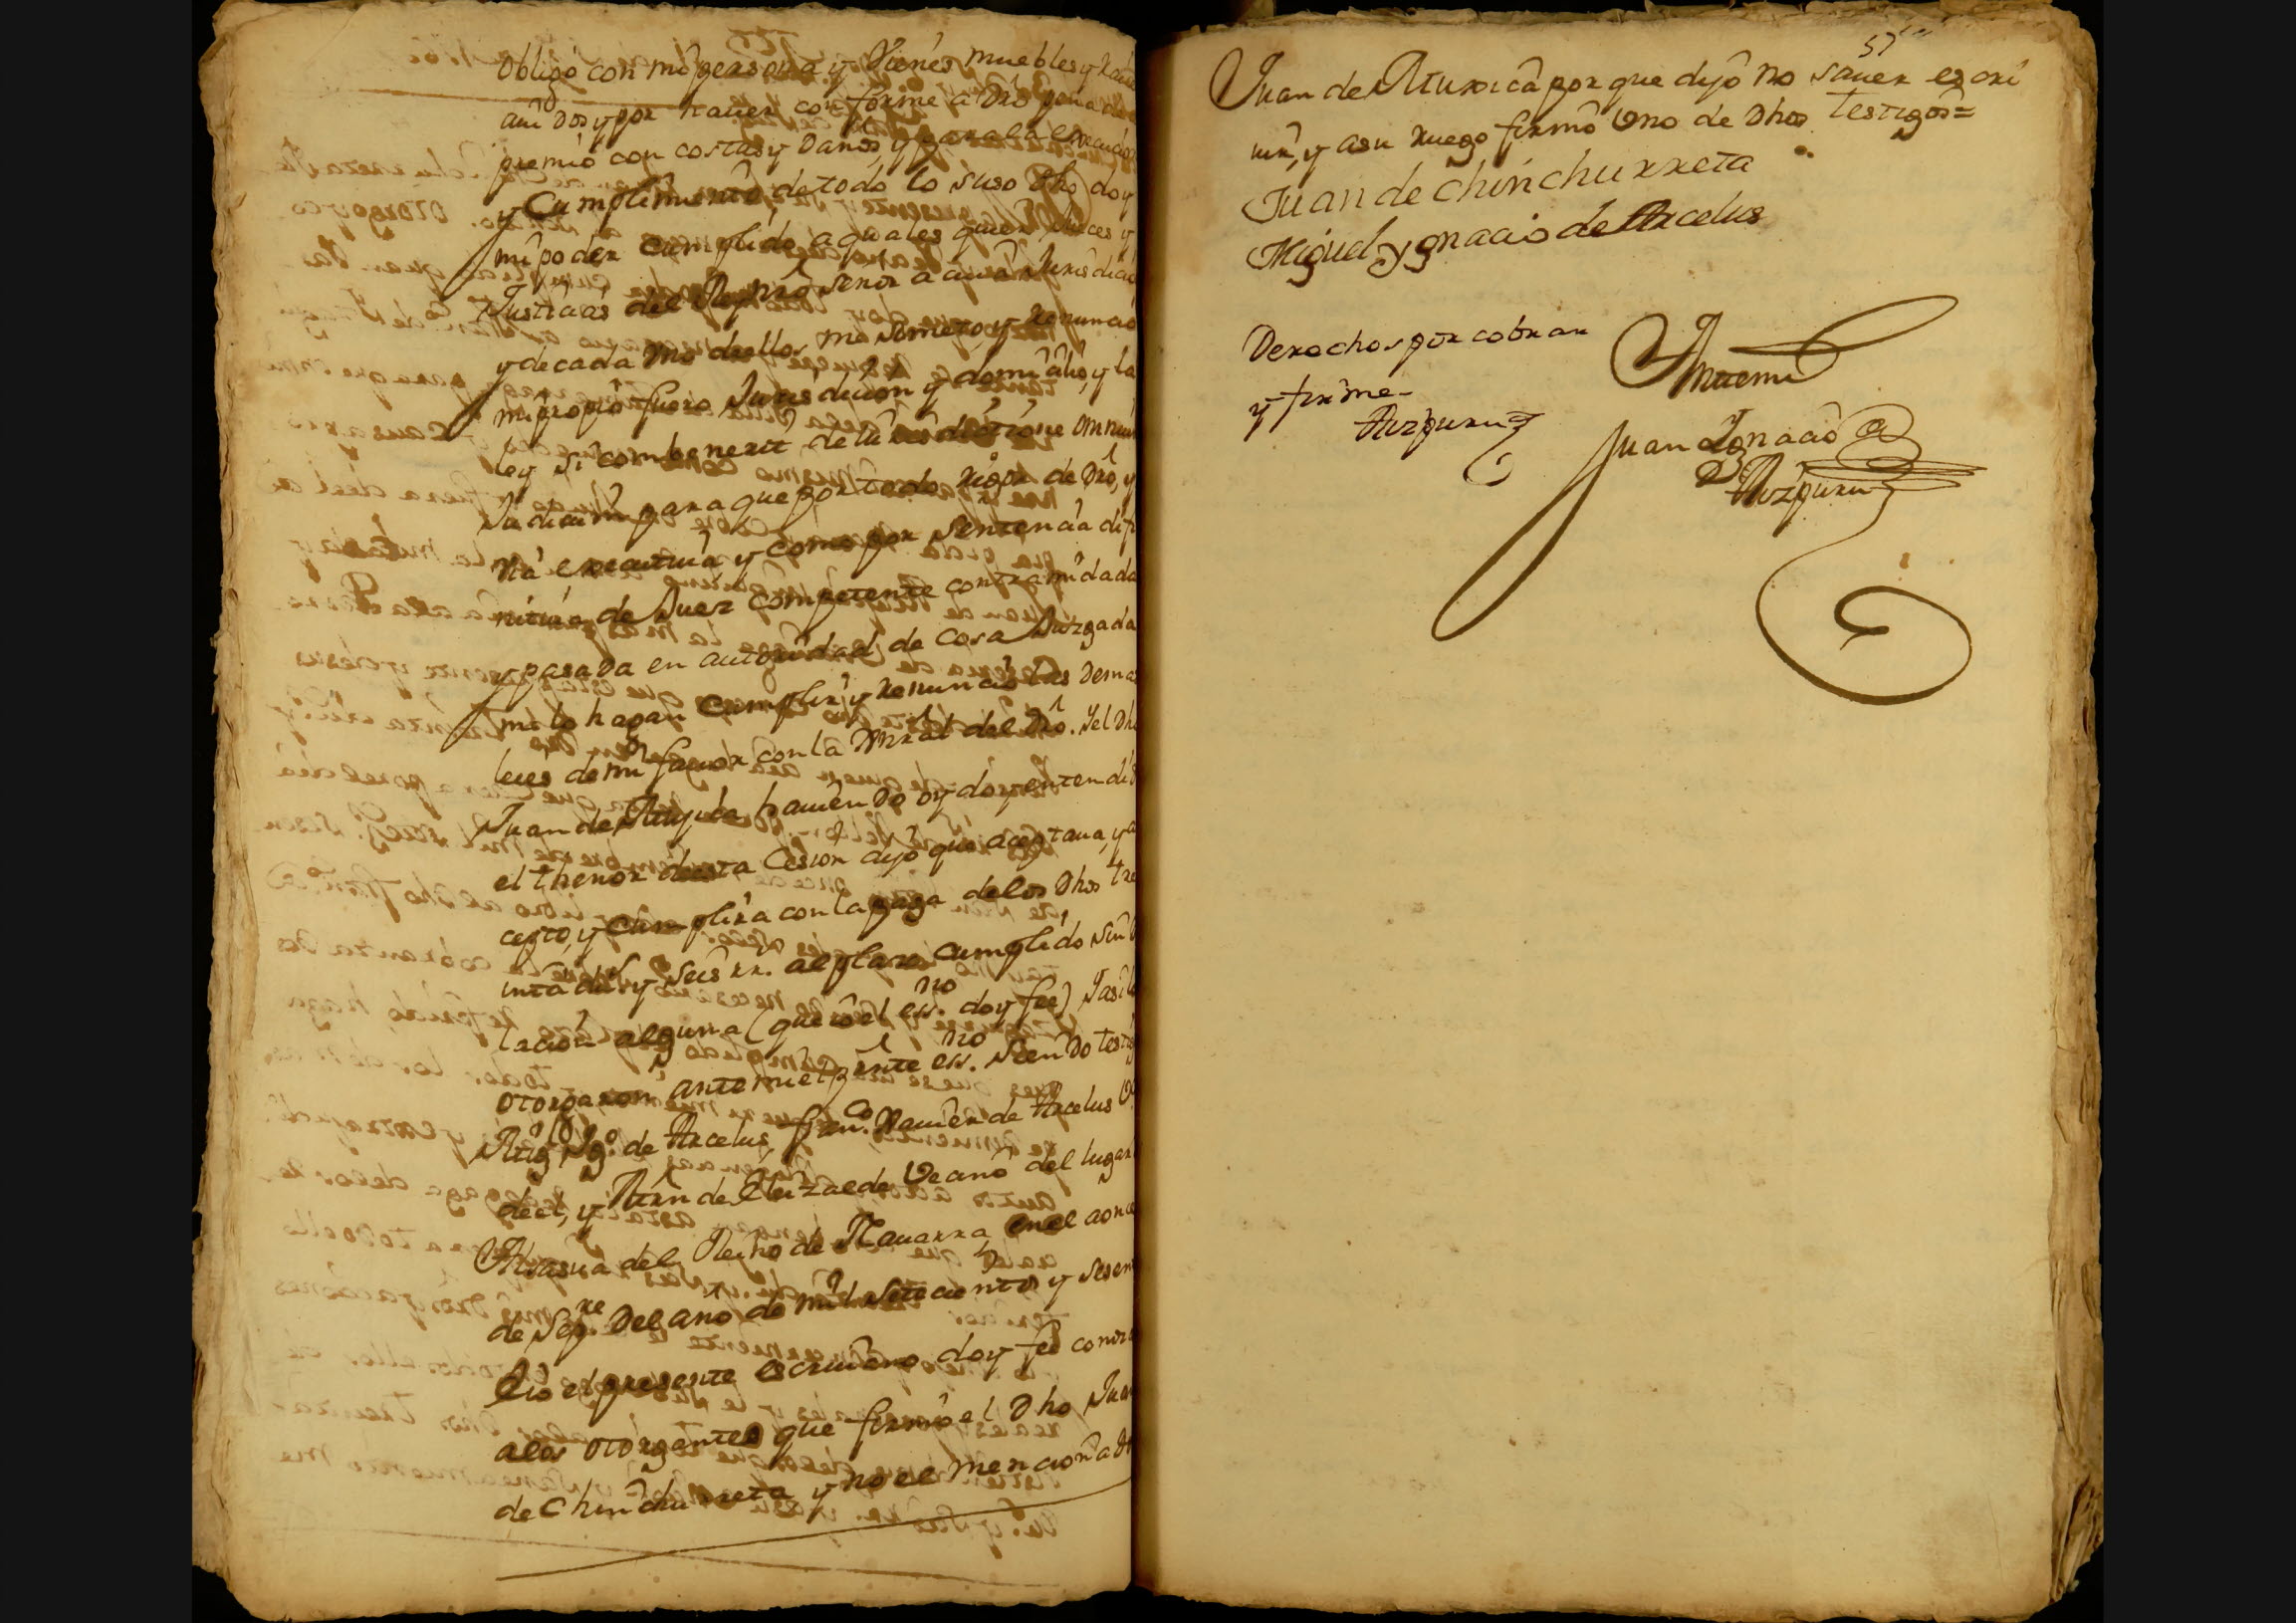 obligo con mi persona y vienes muebles y Raiz
aui dos y por hauer conforme a Dro pena de
premio con costas y Daños, y para la execucion
y Cumplimiento, de todo lo suso Dho doy
mi poder Cumplido a quales quier Juezes y
Justicias del Rey nro señor a cuia Jurisdicio
y de cada Vno dellos me someto, y Renuncio
mi propio fuero Jurisdicion y domicilio, y la
ley si combenerit de Jurisdictione omniũ
Judicum para que por todo rigor de Dro, y
via executiua y como por Sentencia difi
nitiua de Juez competente contra mi dada
y pasada en autoridad de cosa Juzgada
me lo hagan Cumplir y Renuncio las Demas
leies de mi fauor con la Gnral del Dro. Y el Dho
Juan de hauiendo oydo y entendido
el thenor desta Cesion dijo que aceptaua, y a
cepto, y cumplira con la paga de los Dhos tre
inta du.s y Seis rr. al plazo cumplido sin di
lacion alguna (que io el ess.no doy fee) Y asi lo
otorgaron ante mi el press.te ess.no siendo testigos
Mig.l Ig.o de Arcelus, fran.co Xauier de Arcelus Ve
de el, y Mrn de Eluzalde Vecino del lugar
Alsasua del Reino de Nauarra, en el a once
de Sep.re Del año de mil Setecientos y sesen
E io el presente escriuano doy fee conozco
a los otorgantes que firmo el Dho Juan
de Chinchurreta y no el mencionado
57
Juan de Muxica por que dijo no sauer escri
uir, y a su ruego firmo Vno de Dhos testigos=
Juan de chinchurreta
Miguel ygnacio de Arcelus
Derechos por cobrar
y firme-
Aizpuru
Ante mi
Juan Ignacio
D Aizpuru